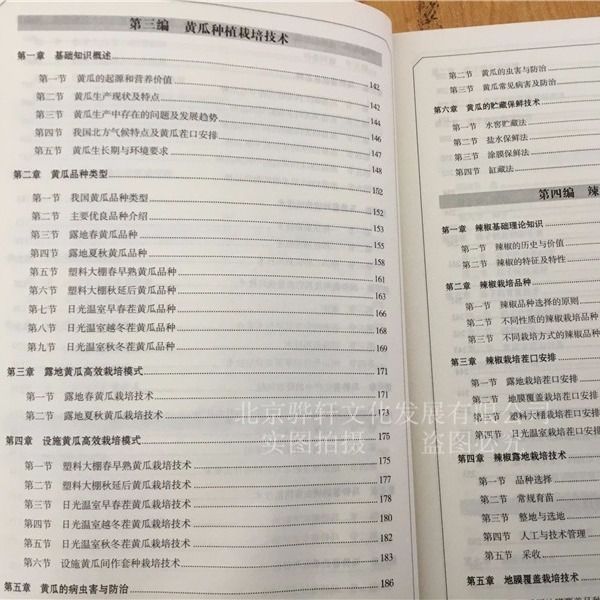 第三编 黄瓜种植栽培技术
第一章 基础知识概述
第一节 黄瓜的起源和营养价值 142
第二节 黄瓜生产现状及特点 142
第三节 黄瓜生产中存在的问题及发展趋势 144
第四节 我国北方气候特点及黄瓜茬口安排 146
第五节 黄瓜生长期与环境要求 147
148
第二章 黄瓜品种类型 152
第一节 我国黄瓜品种类型 152
第二节 主要优良品种介绍 153
第三节 露地春黄瓜品种 155
第四节 露地夏秋黄瓜品种 158
第五节 塑料大棚春早熟黄瓜品种 161
第六节 塑料大棚秋延后黄瓜品种 163
第七节 日光温室早春茬黄瓜品种 166
第八节 日光温室越冬茬黄瓜品种 168
第九节 日光温室秋冬茬黄瓜品种 169
第三章 露地黄瓜高效栽培模式 171
第一节 露地春黄瓜栽培技术 171
第二节 露地夏秋黄瓜栽培技术 173
第四章 设施黄瓜高效栽培模式 175
第一节 塑料大棚春早熟黄瓜栽培技术 175
第二节 塑料大棚秋延后黄瓜栽培技术 177
第三节 日光温室早春茬黄瓜栽培技术 178
第四节 日光温室越冬茬黄瓜栽培技术 180
第五节 日光温室秋冬茬黄瓜栽培技术 182
第六节 设施黄瓜间作套种栽培技术 183
第五章 黄瓜的病虫害与防治 186
第二节 黄瓜的虫害与防治
第三节 黄瓜常见病害及防治
第六章 黄瓜的贮藏保鲜技术
第一节 水窖贮藏法
第二节 盐水保鲜法
第三节 涂膜保鲜法
第四节 缸藏法
第四编 辣
第一章 辣椒基础理论知识
第一节 辣椒的历史与价值
第二节 辣椒的特征及特性
第二章 辣椒栽培品种
第一节 辣椒品种选择的原则
第二节 不同性质的辣椒栽培品种
第三节 不同栽培方式的辣椒品种
第三章 辣椒栽培茬口安排
第一节 露地栽培茬口安排
第二节 地膜覆盖栽培茬口安排
第三节 塑料大棚栽培茬口安排
第四节 日光温室栽培茬口安排
第四章 辣椒露地栽培技术
第一节 品种选择
第二节 常规育苗
第三节 整地与选地
第四节 人工与技术管理
第五节 采收
第五章 地膜覆盖栽培技术
北京骅轩文化发展有限公
实图拍摄 盗图必究